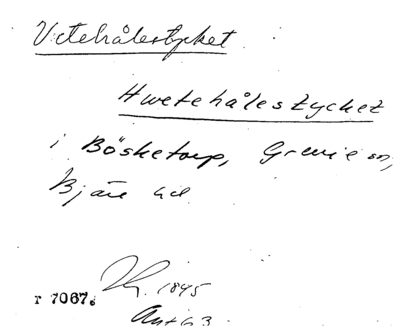 Vetehålestycket
Hwetehålestycket
i Bösketorp, Grevie sn,
Bjäre hd
1845
r 7067.